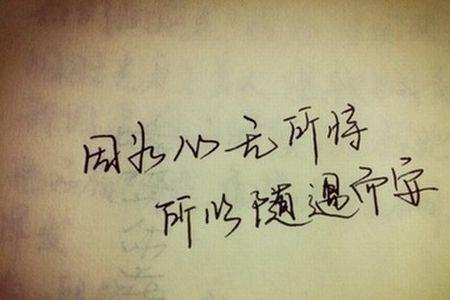 因为心无所恃
所以随遇而安